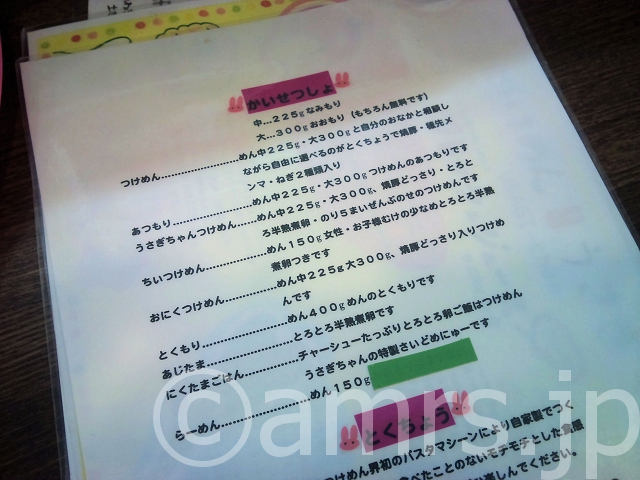 かいせつしょ
中…225gなみもり
大…300gおおもり(もちろん無料です)
つけめん……………………めん中225g・大300gと自分のおなかと相談し
ながら自由に選べるのがとくちょうで焼豚・極先メ
ンマ・ねぎ2種類入り
あつもり……………………めん中225g・大300gつけめんのあつもりです
うさぎちゃんつけめん……めん中225g・大300g、焼豚どっさり・とろと
ろ半熟煮卵・のり5まいぜんぶのせのつけめんです
ちいつけめん………………めん150g女性・お子様むけの少なめとろとろ半熟
煮卵つきです
おにくつけめん……………めん中225g大300g、焼豚どっさり入りつけめ
んです
とくもり……………………めん400gめんのとくもりです
あじたま……………………とろとろ半熟煮卵です
にくたまごはん……………チャーシューたっぷりとろとろ卵ご飯はつけめん
うさぎちゃんの特製さいどめにゅーです
らーめん……………………めん150g
とくちょう
つけめん界初のパスタマシーンにより自家製でつく
食べたことのないモチモチとした食感
楽しんでください。
©amrs.jp